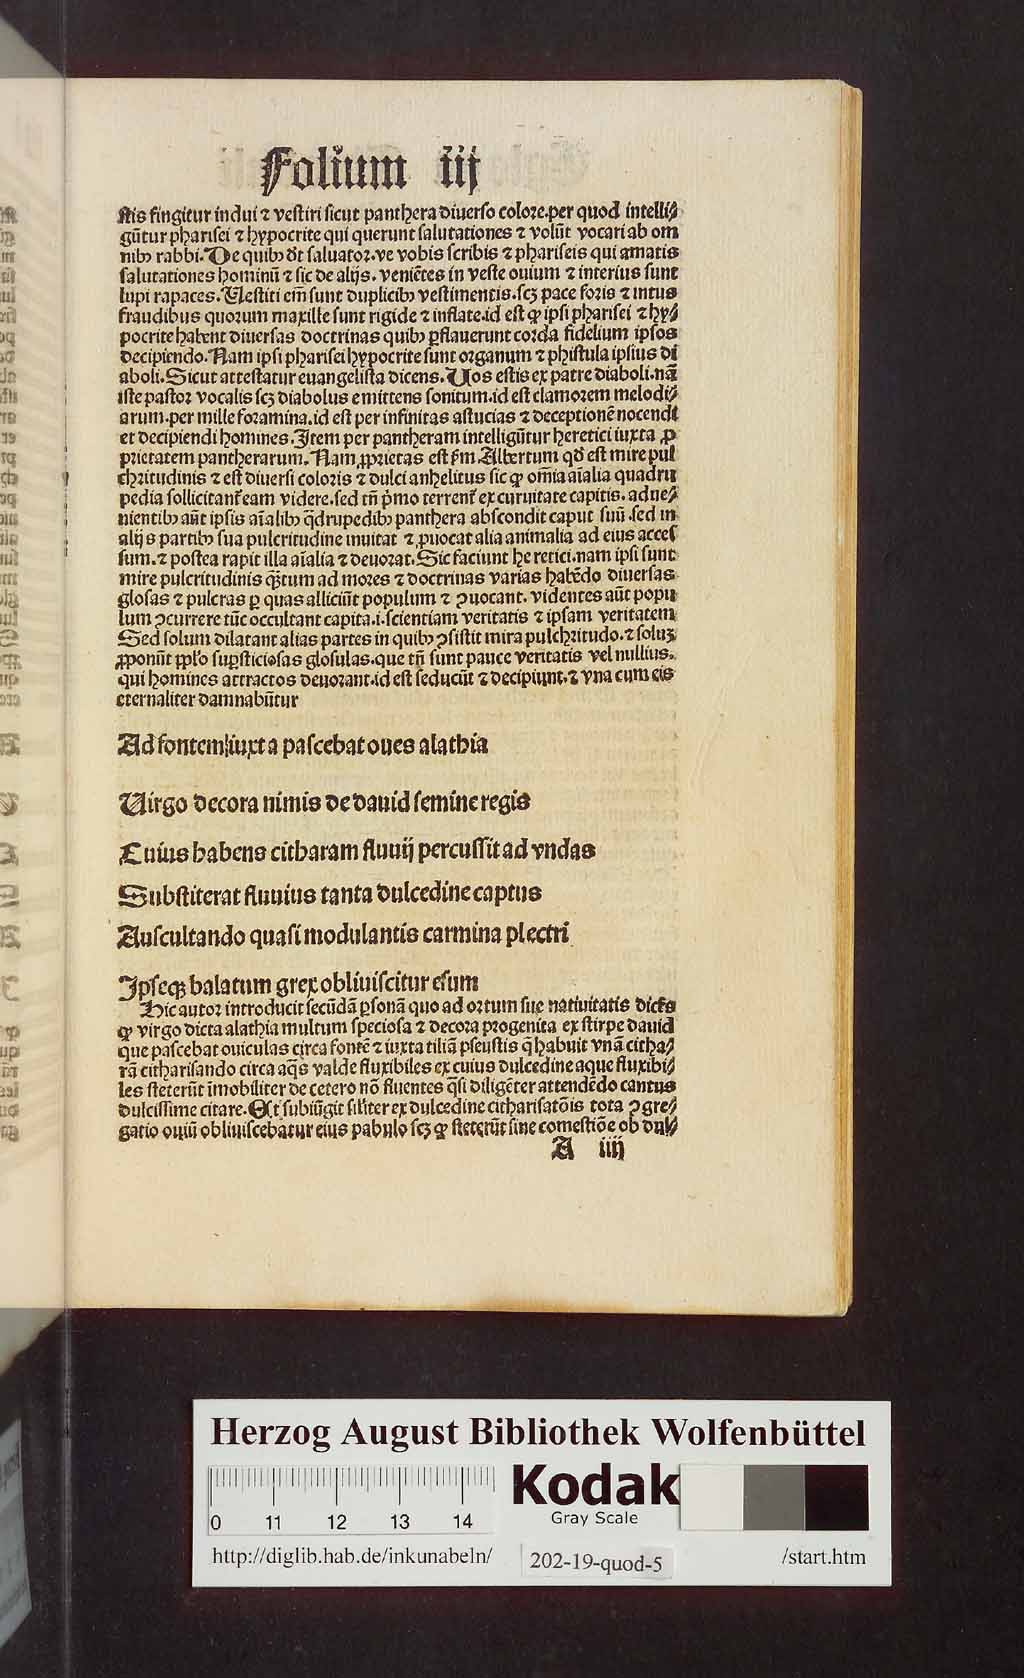 Folium iij
stis fingitur indui ⁊ vestiri sicut panthera diuerso colore.per quod intelli⸗
gũtur pharisei ⁊ hypocrite qui querunt salutationes ⁊ volũt vocari ab om
nibꝫ rabbi. De quibꝫ dr̃t saluator.ve vobis scribis ⁊ phariseis qui amatis
salutationes hominũ ⁊ sic de alijs. veniẽtes in veste ouium ⁊ interius sunt
lupi rapaces. Uestiti em̃ sunt duplicibꝫ vestimentis.scꝫ pace foris ⁊ intus
fraudibus quorum maxille sunt rigide ⁊ inflate.id est ꝙ ipsi pharisei ⁊ hy⸗
pocrite habent diuersas doctrinas quibꝫ ꝑflauerunt corda fidelium ipsos
decipiendo. Nam ipsi pharisei hypocrite sunt organum ⁊ phistula ipsius di
aboli. Sicut attestatur euangelista dicens. Uos estis ex patre diaboli.nã
iste pastor vocalis scꝫ diabolus emittens sonitum.id est clamorem melodi⸗
arum.per mille foramina.id est per infinitas astucias ⁊ deceptionẽ nocendi
et decipiendi homines. Item per pantheram intelligũtur heretici iuxta ꝓ
prietatem pantherarum. Nam ꝓprietas est ẜm Albertum qđ est mire pul
chritudinis ⁊ est diuersi coloris ⁊ dulci anhelitus sic ꝙ om̃ia aĩalia quadru
pedia sollicitant̃ eam videre.sed tñ p̃mo terrent̃ ex curuitate capitis. adue⸗
nientibꝫ aũt ipsis aĩalibꝫ q̃drupedibꝫ panthera abscondit caput suũ.sed in
alijs partibꝫ sua pulcritudine inuitat ⁊ ꝓuocat alia animalia ad eius acces
sum.⁊ postea rapit illa aĩalia ⁊ deuorat. Sic faciunt heretici.nam ipsi sunt
mire pulcritudinis q̃tum ad mores ⁊ doctrinas varias habẽdo diuersas
glosas ⁊ pulcras ꝑ quas alliciũt populum ⁊ ꝯuocant. videntes aũt popu
lum ꝯcurrere tũc occultant capita.i.scientiam veritatis ⁊ ipsam veritatem
Sed solum dilatant alias partes in quibꝫ ꝯsistit mira pulchritudo.⁊ soluꝫ
ꝓponũt ppl̃o suꝑsticiosas glosulas.que tñ sunt pauce veritatis vel nullius.
qui homines attractos deuorant.id est seducũt ⁊ decipiunt.⁊ vna cum eis
eternaliter damnabũtur
Ad fontem iuxta pascebat oues alathia
Uirgo decora nimis de dauid semine regis
Cuius habens citharam fluuij percussit ad vndas
Substiterat fluuius tanta dulcedine captus
Auscultando quasi modulantis carmina plectri
Ipseqꝫ balatum grex obliuiscitur esum
Hic autor introducit secũdã ꝑsonã quo ad ortum sue natiuitatis dicẽs
ꝙ virgo dicta alathia multum speciosa ⁊ decora progenita ex stirpe dauid
que pascebat ouiculas circa fontẽ ⁊ iuxta tiliã pseustis q̃ habuit vnã citha⸗
rã citharisando circa aq̃s valde fluxibiles ex cuius dulcedine aque fluxibi⸗
les steterũt imobiliter de cetero nõ fluentes q̃si diligẽter attendẽdo cantus
dulcissime citare. Et subiũgit sil̃iter ex dulcedine citharisatõis tota ꝯgre⸗
gatio ouiũ obliuiscebatur eius pabulo scꝫ ꝙ steterũt sine comestiõe ob dul⸗
A iiij
Herzog August Bibliothek Wolfenbüttel
Kodak
Gray Scale
0 11 12 13 14
http://diglib.hab.de/inkunabeln/ 202-19-quod-5 /start.htm